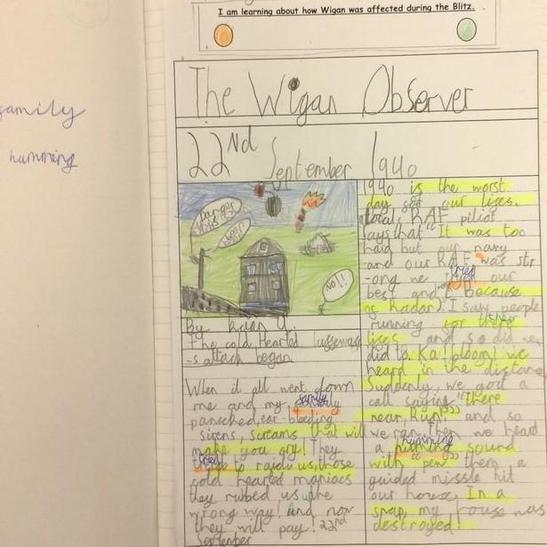 I am learning about how Wigan was affected during the Blitz.
family
humming
The Wigan Observer
22nd September 1940
Danger
NO!!
By
The cold hearted
-s attack began
When it all went down
me and my family
panicked, ear-bleeding
sirens, screams that will
make you cry! They
tried to us, those
cold hearted maniacs
they rubed us the
wrong way! And now
they will pay! 22nd
September
1940 is the worst
day of our lives.
local RAF pilot
says that "It was too
had but our navy
and our RAF was str
-ong we tried our
best and because
radar). I saw people
running for there
lives and so did we
did to. Ka! bloom! we
heard in the distance
Suddenly we got a
call saying "there
near, Run!" and so
we ran then we heard
a humming sound
with pew them a
guided missle hit
our house. In a
snap, my house was
destroyed!